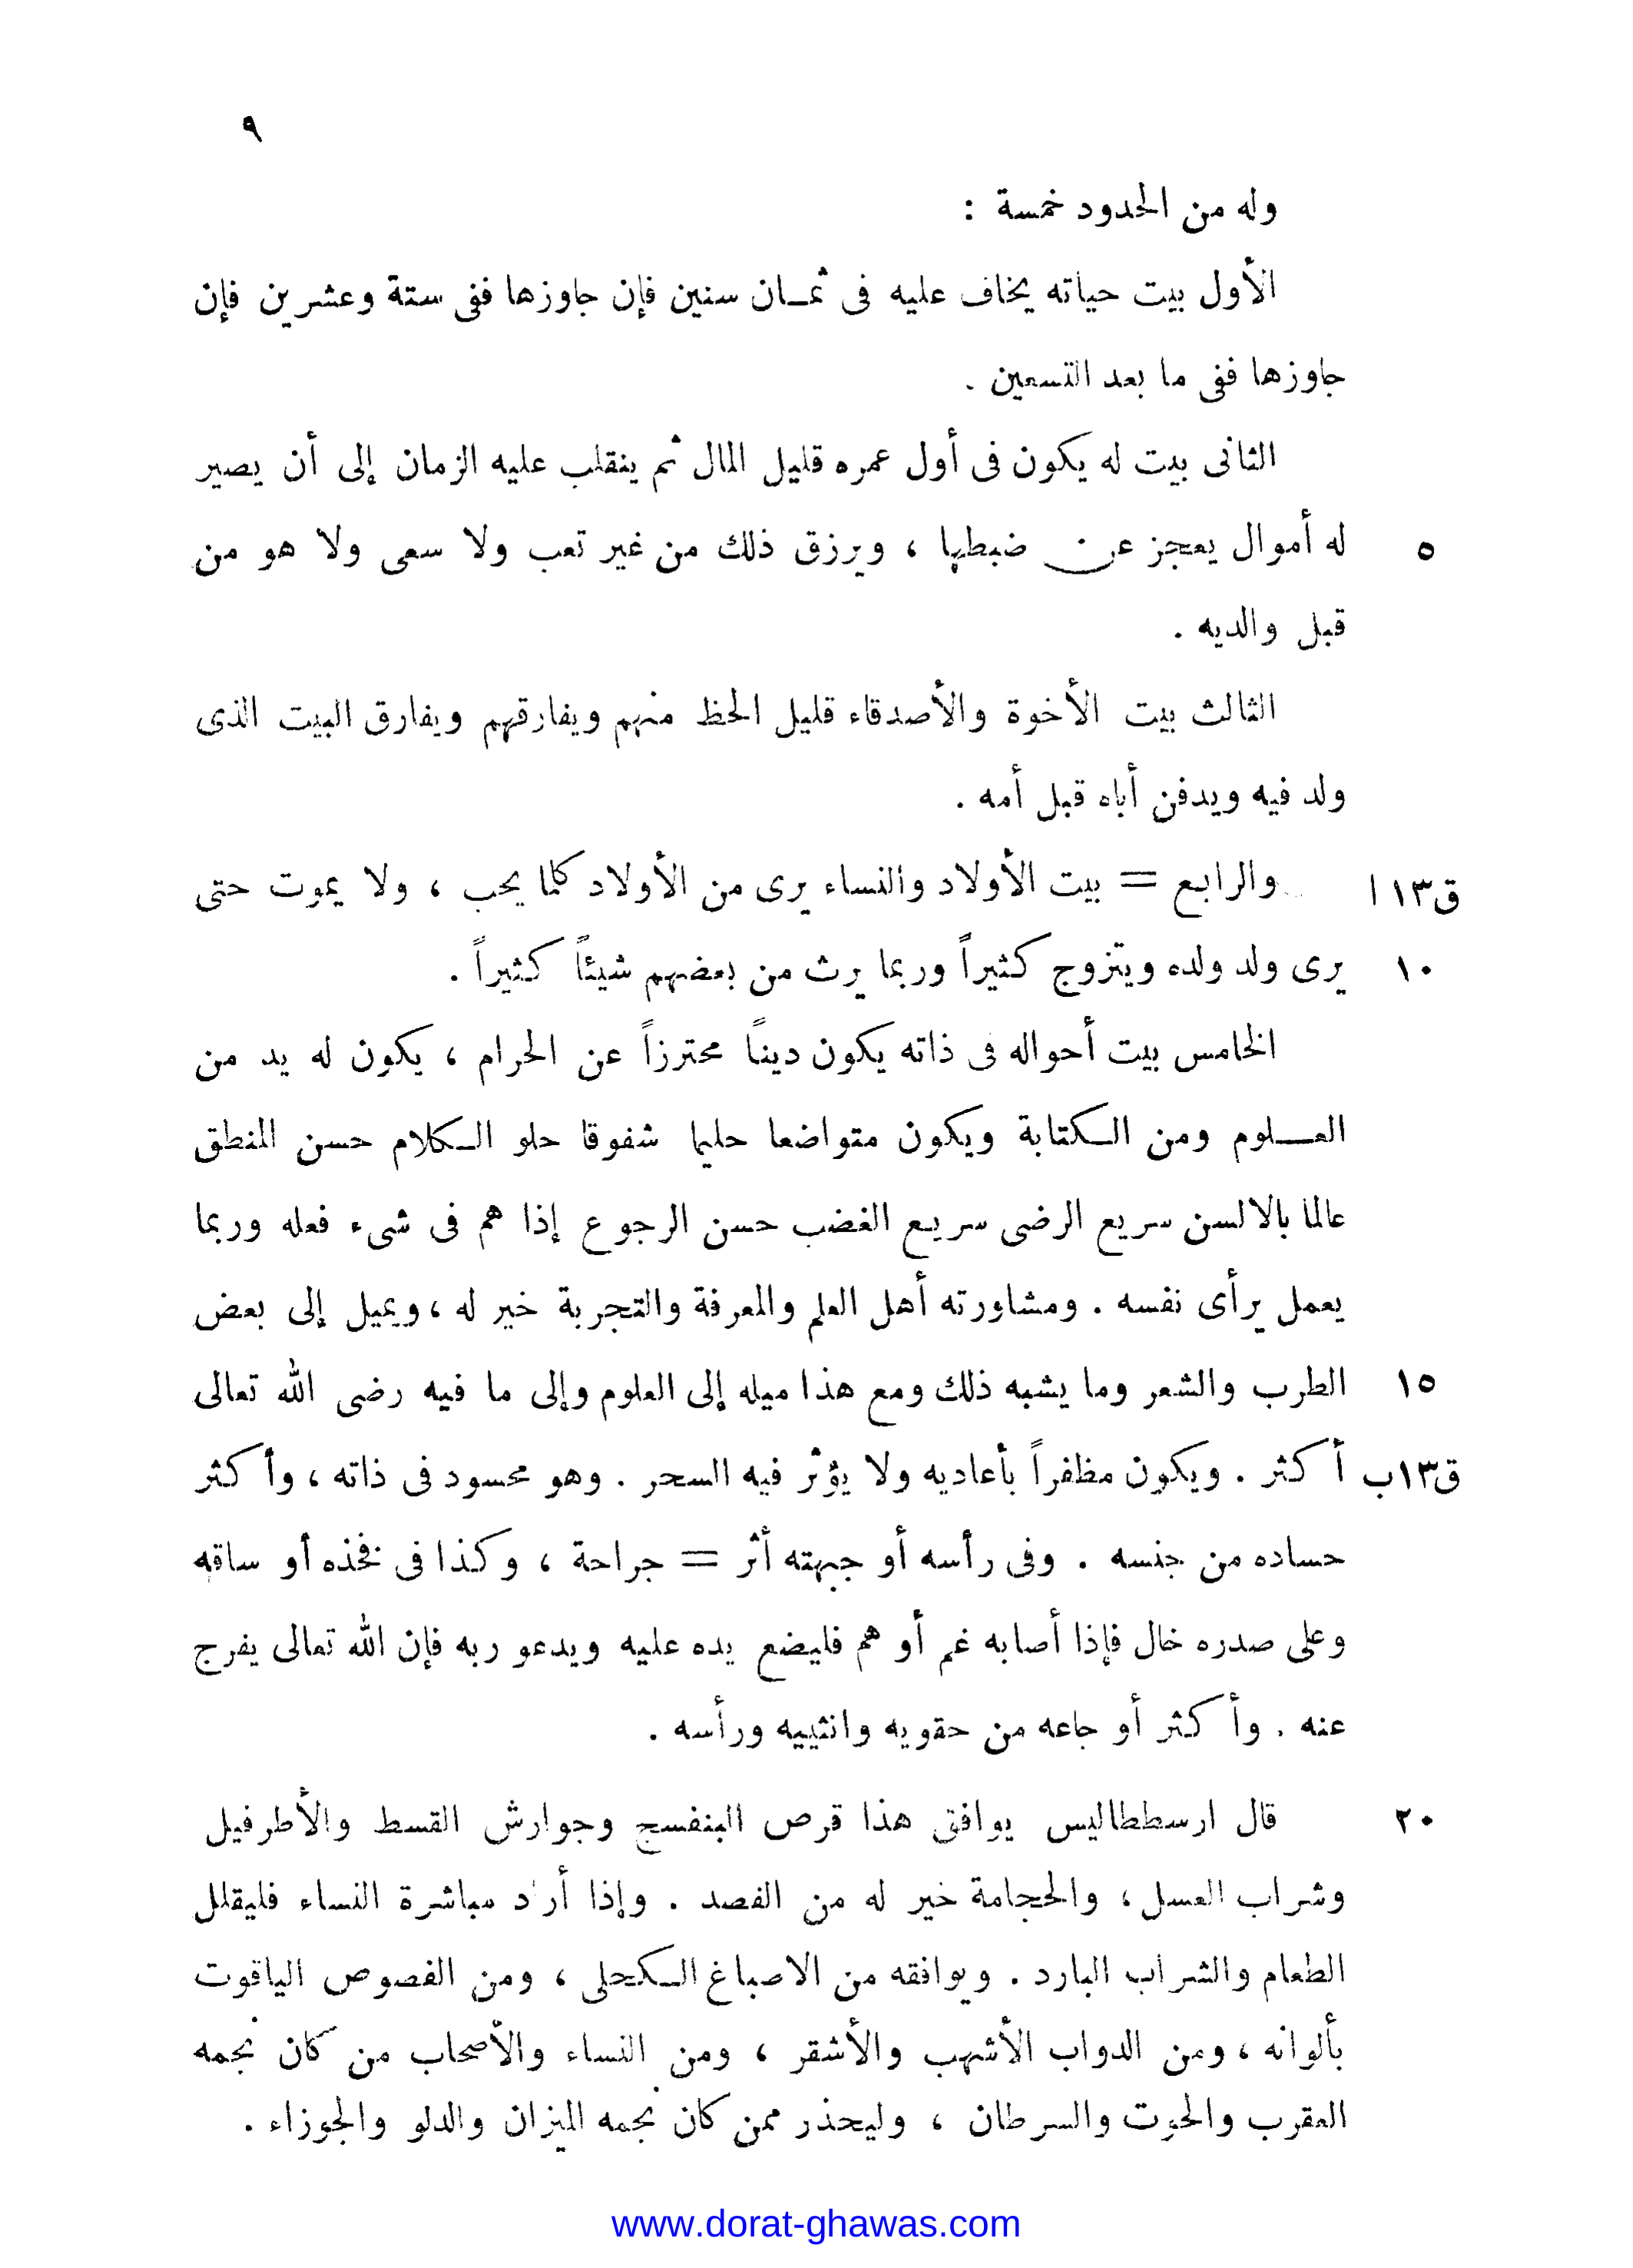 ٩
وله من الحدود خمسة :
الأول بيت حياته يخاف عليه فى ثمـان سنين فإن جاوزها ففى ستة وعشرين فإن
جاوزها ففى ما بعد التسعين .
الثانى بيت له يكون فى أول عمره قليل المال ثم ينقلب عليه الزمان إلى أن يصير
٥ له أموال يعجز عن ضبطها ، ويرزق ذلك من غير تعب ولا سعى ولا هو من
قبل والديه .
الثالث بيت الأخوة والأصدقاء قليل الحظ منهم ويفارقهم ويفارق البيت الذى
ولد فيه ويدفن أباه قبل أمه .
ق١٣ ا والرابع = بيت الأولاد والنساء يرى من الأولاد كلما يحب ، ولا يموت حتى
١٠ يرى ولد ولده ويتزوج كثيراً وربما يرث من بعضهم شيئاً كثيراً .
الخامس بيت أحواله فى ذاته يكون ديناً محترزاً عن الحرام ، يكون له يد من
العـــلوم ومن الـكتابة ويكون متواضعا حليما شفوقا حلو الـكلام حسن المنطق
عالما بالالسن سريع الرضى سريع الغضب حسن الرجوع إذا هم فى شىء فعله وربما
يعمل برأى نفسه . ومشاورته أهل العلم والمعرفة والتجربة خير له ، ويميل إلى بعض
١٥ الطرب والشعر وما يشبه ذلك ومع هذا ميله إلى العلوم وإلى ما فيه رضى الله تعالى
ق١٣ب أكثر . ويكون مظفراً بأعاديه ولا يؤثر فيه السحر . وهو محسود فى ذاته ، وأكثر
حساده من جنسه . وفى رأسه أو جبهته أثر = جراحة ، وكذا فى فخذه أو ساقه
وعلى صدره خال فإذا أصابه غم أو هم فليضع يده عليه ويدعو ربه فإن الله تعالى يفرج
عنه . وأكثر أو جاعه من حقويه وانثييه ورأسه .
٢٠ قال ارسططاليس يوافق هذا قرص البنفسج وجوارش القسط والأطرفيل
وشراب العسل ، والحجامة خير له من الفصد . وإذا أراد مباشرة النساء فليقلل
الطعام والشراب البارد . ويوافقه من الاصباغ الـكحلى ، ومن الفصوص الياقوت
بألوانه ، ومن الدواب الأشهب والأشقر ، ومن النساء والأصحاب من كان نجمه
العقرب والحوت والسرطان ، وليحذر ممن كان نجمه الميزان والدلو والجوزاء .
www.dorat-ghawas.com